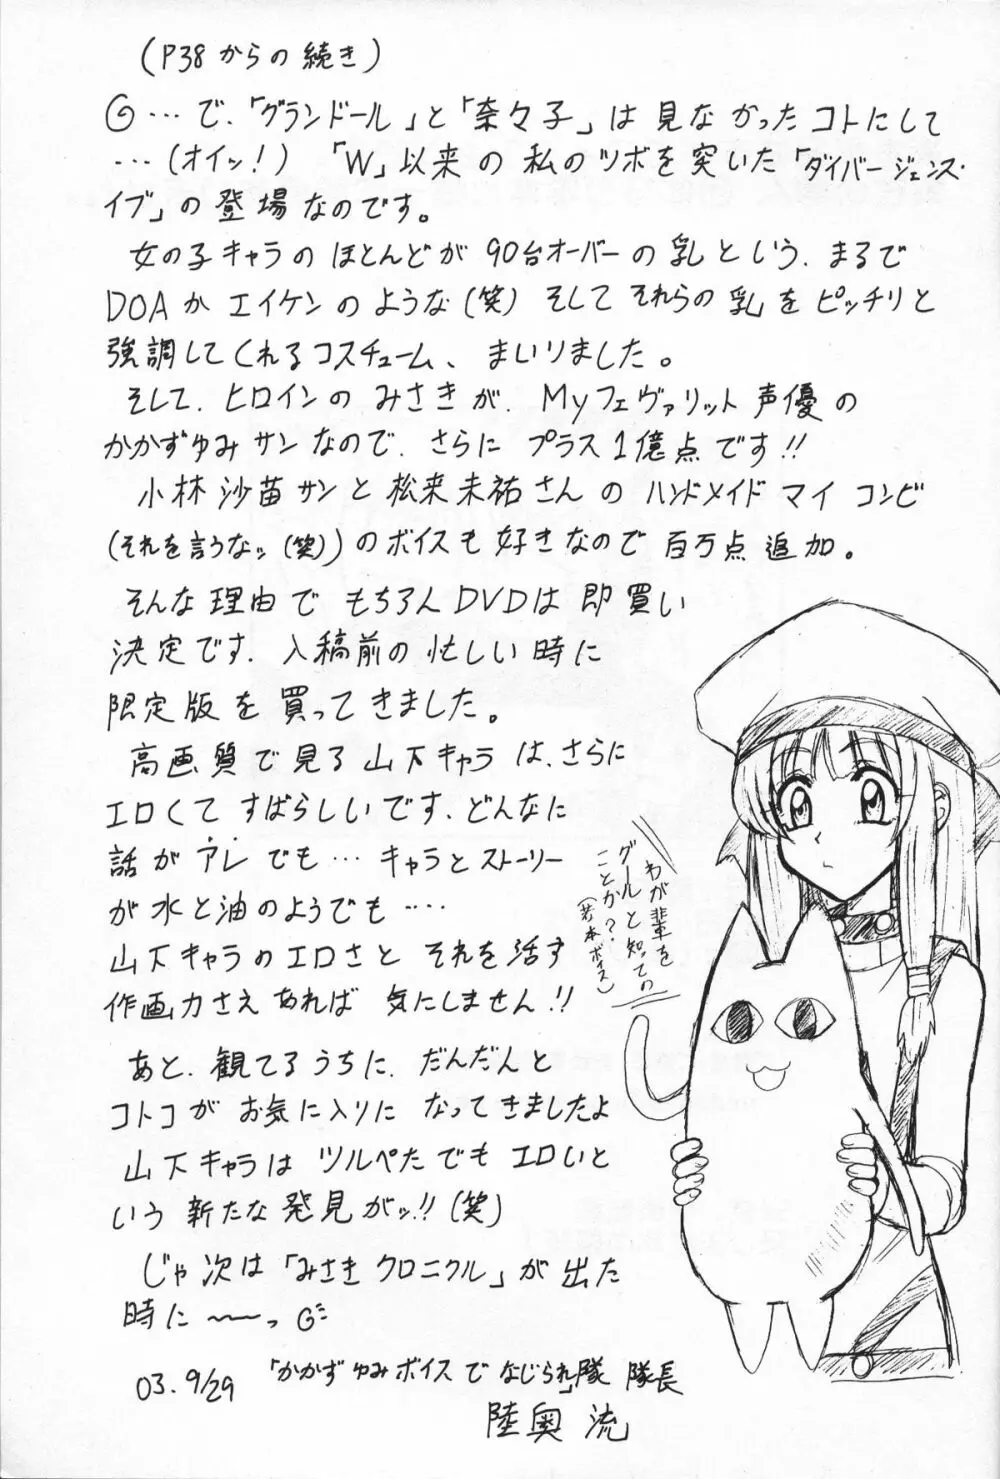 (P38からの続き)
…で、「グランドール」と「奈々子」は見なかったコトにして
…(オイッ!) 「W」以来の私のツボを突いた「ダイバージェンス・
イブ」の登場なのです。
女の子キャラのほとんどが90台オーバーの乳という、まるで
DOAかエイケンのような(笑) そしてそれらの乳をピッチリと
強調してくれるコスチューム、まいりました。
そして、ヒロインのみさきが、Myフェヴァリット声優の
かかずゆみサンなので、さらにプラス1億点です!!
小林沙苗サンと松来未祐さんのハンドメイドマイコンビ
(それを言うなッ(笑))のボイスも好きなので百万点追加。
そんな理由でもちろんDVDは即買い
決定です、入稿前の忙しい時に
限定版を買ってきました。
高画質で見る山下キャラは、さらに
エロくてすばらしいです、どんなに
話がアレでも…キャラとストーリー
が水と油のようでも‥‥
山下キャラのエロさとそれを活す
作画力さえあれば気にしません!!
あと、観てるうちに、だんだんと
コトコがお気に入りになってきましたよ
山下キャラはツルペたでもエロいと
いう新たな発見がッ!!(笑)
じゃ次は「みさきクロニクル」が出た
時に〜〜っ
03.9/29 「かかずゆみボイスでなじられ」隊 隊長
陸奥流
わが輩を
グールと知っての
ことか?
(若本ボイス)